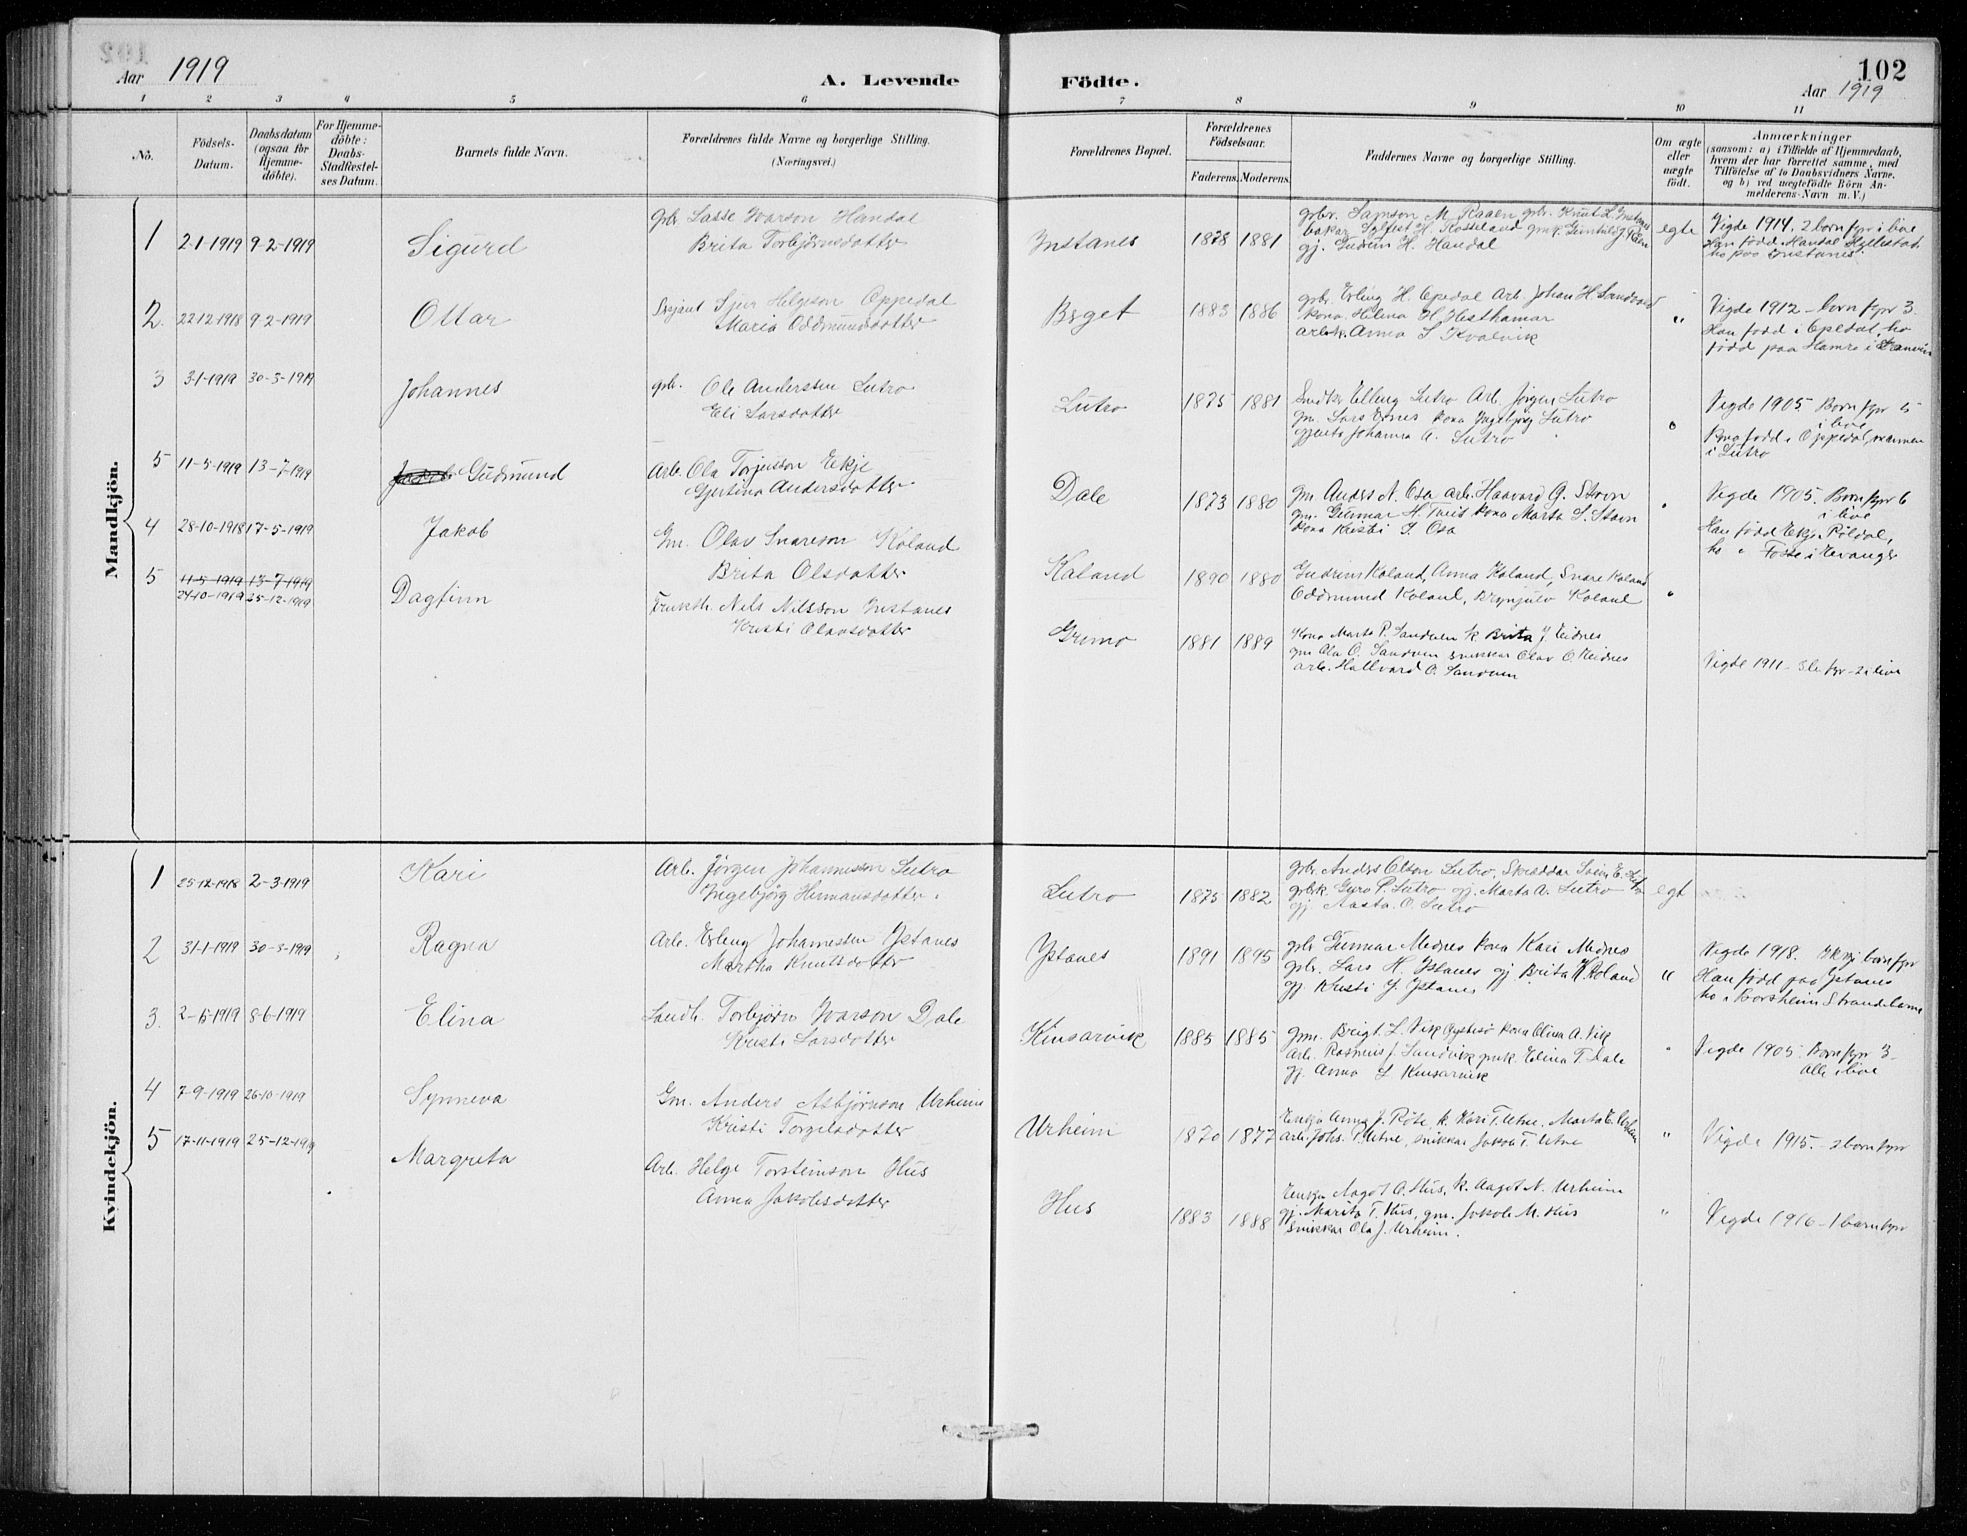 Aar 1919
A. Levende Födte.
102
Aar 1919
1 2 3 4 5 6 7 8 9 10 11
No.
Födsels-Datum.
Daabsdatum (ogsaa för Hjemme-döbte).
For Hjemme-döbte: Daabs-Stadfæstel-ses Datum.
Barnets fulde Navn.
Forældrenes fulde Navne og borgerlige Stilling. (Næringsvei.)
Forældrenes Bopæl.
Forældrenes Födselsaar.
Faderens. Moderens.
Faddernes Navne og borgerlige Stilling.
Om ægte eller uægte födt.
Anmærkninger
(saasom: a) i Tilfælde af Hjemmedaab,
hvem der har forrettet samme, med
Tilföielse af to Daabsvidners Navne,
og b) ved uægtefödte Börn An-
melderens Navn m. V.)
Mandkjön.
1 2-1-1919 9-2-1919 Sigurd
gbr. Lasse Ivarson Handal
Brita Torbjörnsdotter
Instanes 1878 1881
gbr. Samson M. Raaen gbr. Knut L. Instenes
bakar Sylfest H. Kosseland gmk. Gunhild J. Raaen
gj. Gudrun H. Handal
egte
Vigde 1914. 2 born fyr i live
Han född Handal Hyllestad
ho paa Instanes.
2. 22 12 1918 9-2-1919 Ottar
Sjur Helgeson Oppedal
Maria Oddmundsdotter
Berget 1883 1886
gbr. Erling H. Opedal Arb. Johan H. Sandvand
kona Helena H Hesthamar
arbk. Anna S Kvalvik
"
Vigde 1912 - born fyr 3.
Han född i Opedal, ho
född paa Hamre i Granvin
3 3-1-1919 30-3-1919 Johannes
gbr. Ole Andersten Lutro
Eli Larsdotter
Lutro 1875 1881
Snidkr Elling Lutro Arb. Jörgen Lutro
gm. Lars Eidnes kona Ingebjörg Lutro
gjenta Johanna A. Lutro
Vigde 1905. Born fyr 5
i live
Kona född i Oppedal, mannen
i Lutro
5 11-5-1919 13-7-1919 Gudmund
Arb. Ola Torjusson Ekje
Gjertina Andersdotter
Dale 1873 1880
gm Anders N. Osa arb. Haavard G. Stovn
gm. Gunnar H. Tveit kona Marta S. Stovn
kona Kristi I. Osa
Vigde 1905. Born fyr 6
i live
Han född Ekje Röldal,
ho " Fosse i Evanger
4 28-10-1918 17-5-1919 Jakob
Gm. Olav Snareson Koland
Brita Olsdotter
Kaland 1890 1880
Gudrun Koland, Anna Koland, Snare Koland
Oddmund Koland, Brynjulv Koland
5 11-5-1919 13-7-1919
24-10-1919 25-12-1919 Dagfinn
Frukth. Nils Nilsson Instanes
Kristi Olavsdotter
Grimo 1881 1889
Kona Marta P. Sandven k. Brita J. Eidnes
gm Ola O. Sandven snikkar Olav O. Eidnes
arb. Hallvard O. Sandven
Vigde 1911 - 3 b. fyr - 2 i live
Kvindekjön.
1 25-12-1918 2-3-1919 Kari
Arb. Jörgen Johannesson Lutro
Ingebjörg Hermansdotter
Lutro 1875 1882
gbr Anders Olson Lutro, Skræddar Svein E. Lutro
gbrk Guro P. Lutro gj. Marta A. Lutro
gj Aasta O. Lutro
egt
2 31-1-1919 30-3-1919 Ragna
Arb. Erling Johannesten Ystanes
Martha Knutsdotter
Ystanes 1891 1895
gbr Gunnar Mednes kona Kari Mednes
gbr. Lars H. Ystanes gj Brita K Koland
gj Kristi J. Ystanes
"
Vigde 1918. Ikkje born fyr
Han född paa Ystanes
ho i Borsheim Strandebarm
3. 2-5-1919 8-6-1919 Elina
Landh. Torbjörn Ivarson Dale
Kristi Larsdotter
Kinsarvik 1885 1885
gm. Brigt. L. Vik Öystesö kona Elina A. Vik
Arb. Rasmus J. Sandvik pmk. Elina T. Dale
gj. Anna L Kinsarvik
"
Vigde 1905. Born fyr 3 -
alle i live
4 7-9-1919 26-10-1919 Synneva
Gm. Anders Asbjörnson Urheim
Kristi Torgilsdotter
Urheim 1870 1877
Enkja Anna J. Röte, k. Kari T. Utne, Marta E. Urheim
Arb. Johs. T. Utne, snikkar Jakob T. Utne
"
Vigde 1915. - 2 born fyr
5 17-11-1919 25-12-1919 Margreta
Arb. Helge Torsteinson Hus
Anna Jakobsdotter
Hus 1883 1888
Enkja Aagot O. Hus, k. Aagot N. Urheim
gj. Marita T. Hus, gm. Jakob M. Hus
snikkar Ola J. Urheim.
"
Vigde 1916 - 1 barn fyr